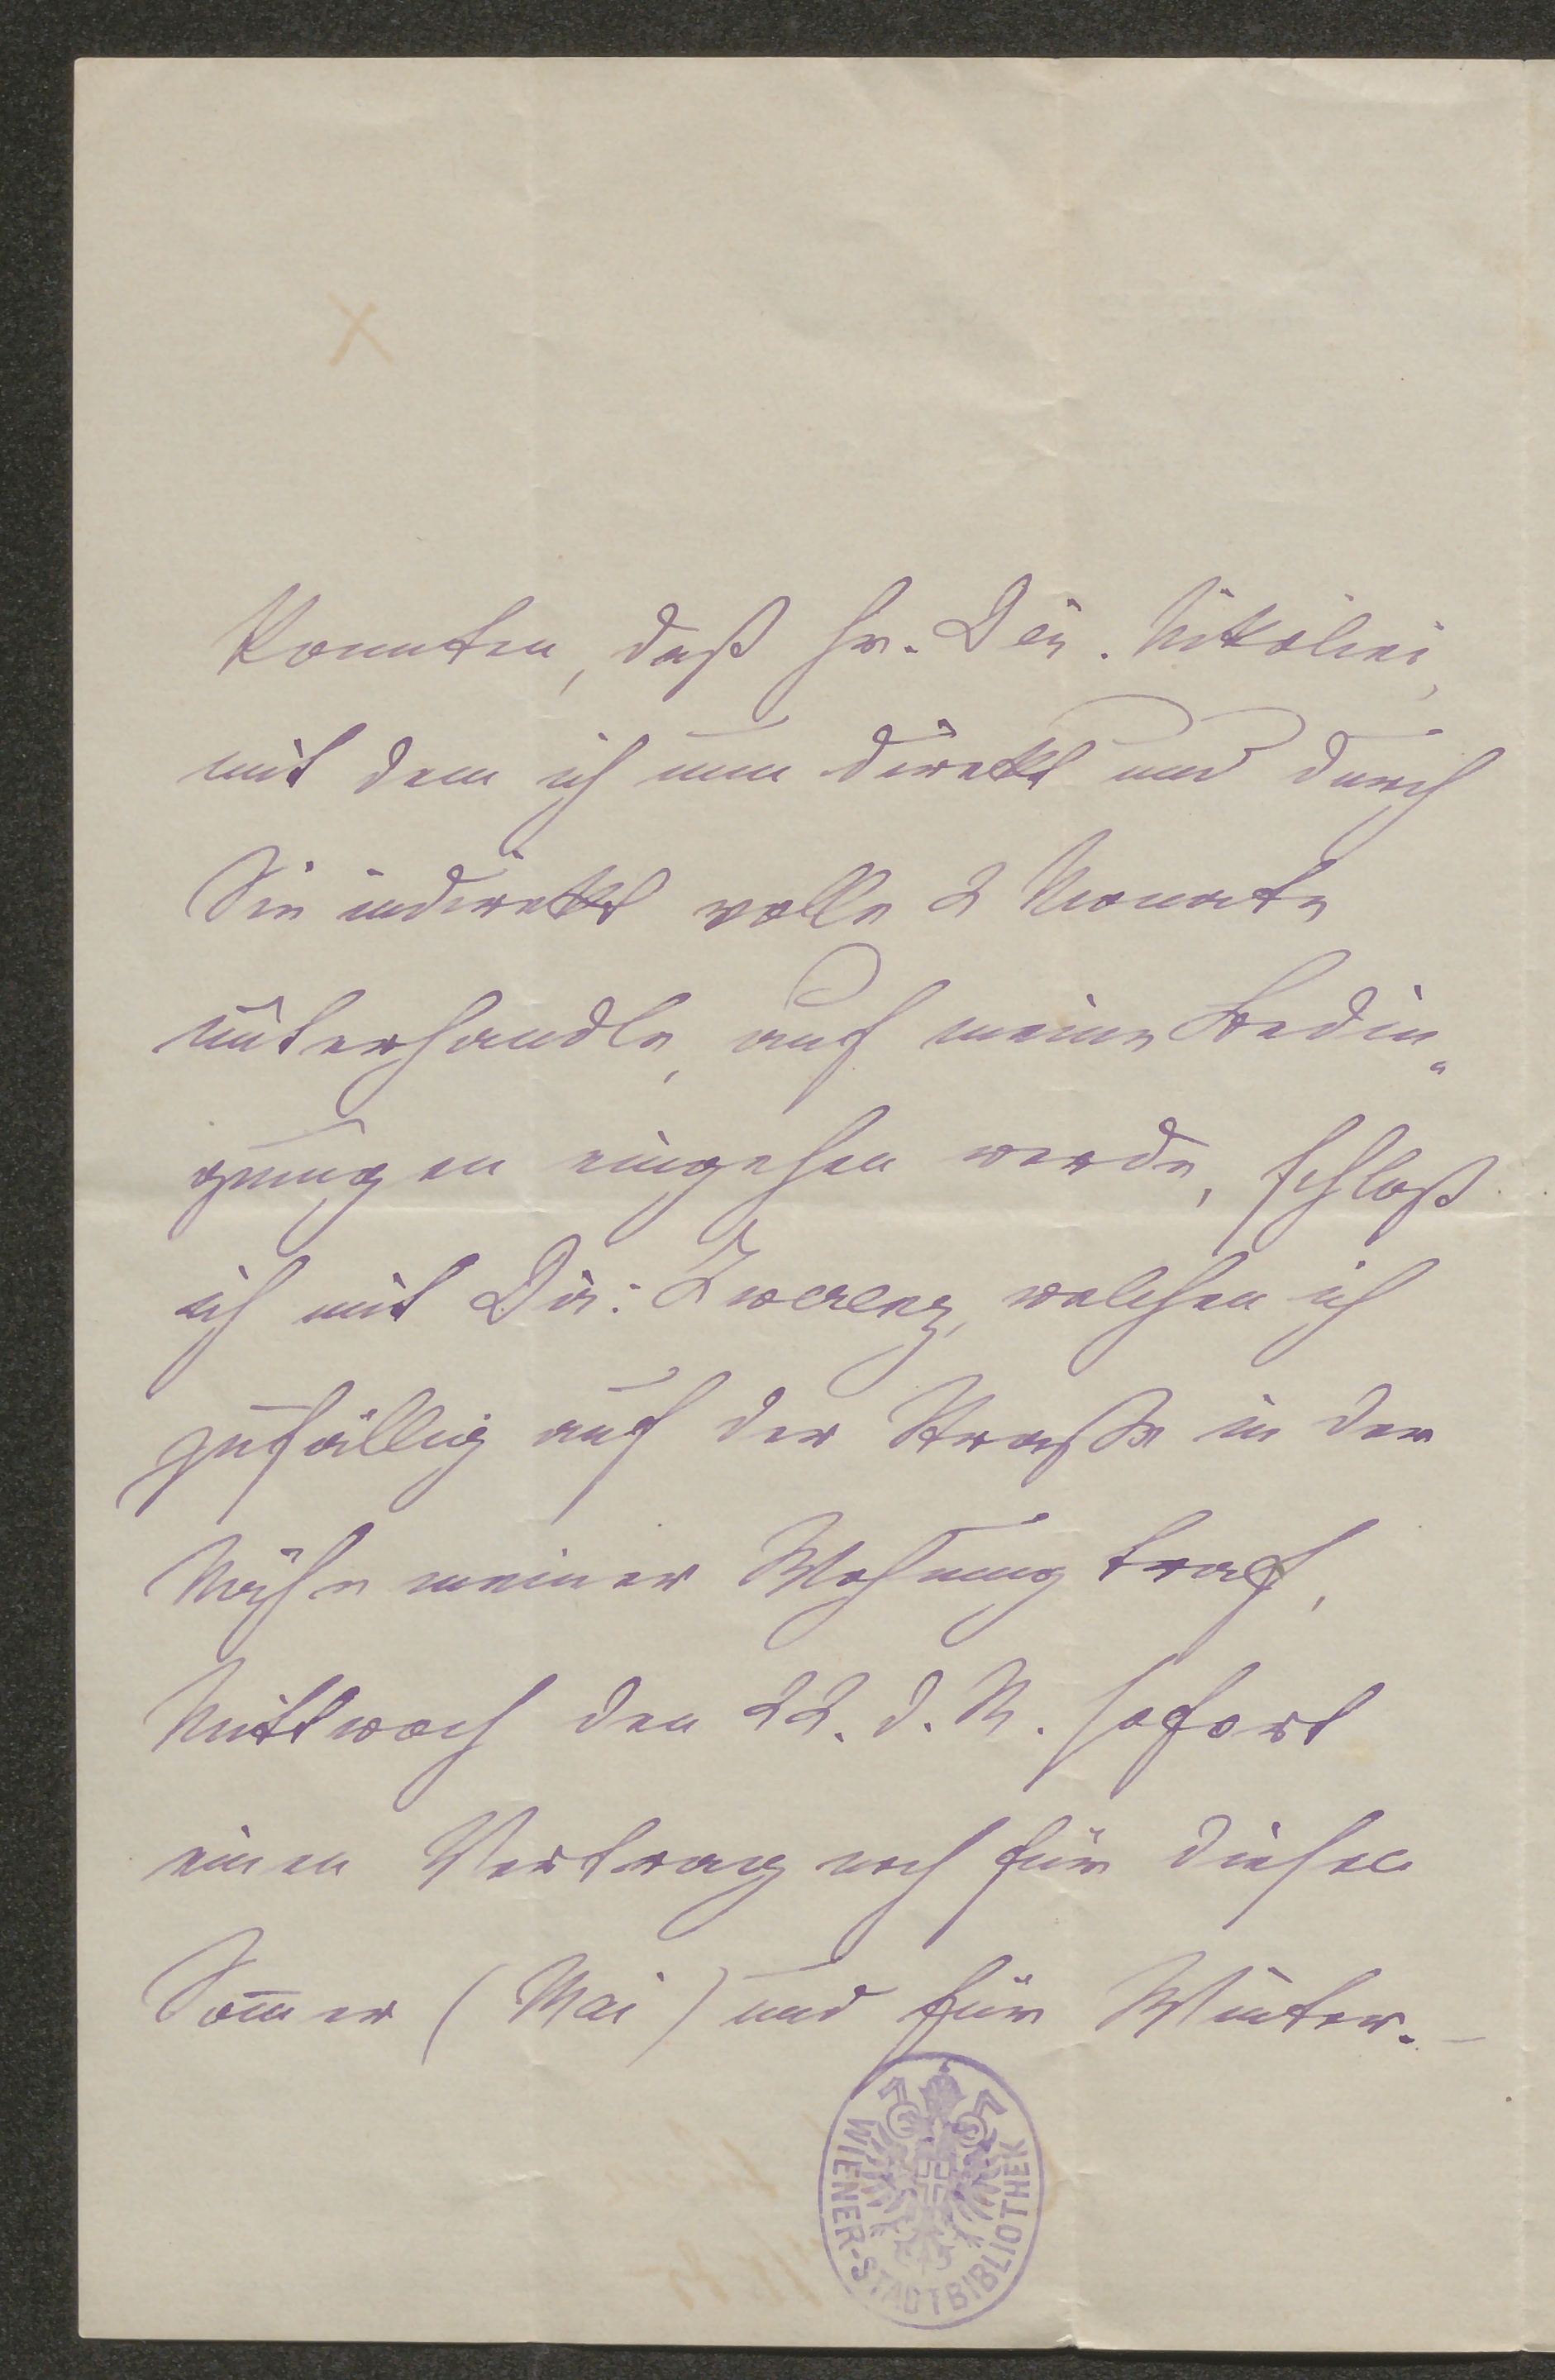 konnten, daß Hr. Dir. Nikolini,
mit dem ich nun direkt und durch
Sie indirekt volle 2 Monate
unterhandle, auf meine Bedin„
gungen eingehen werde, schloß
ich mit Dir: Zwerenz, welchen ich
zufällig auf der Straße in der
Nähe meiner Wohnung traf,
Mittwoch den 22. d. M. sofort
einen Vertrag noch für diesen
Som̅er (Mai) und für Winter. –
WIENER-STADTBIBLIOTHEK